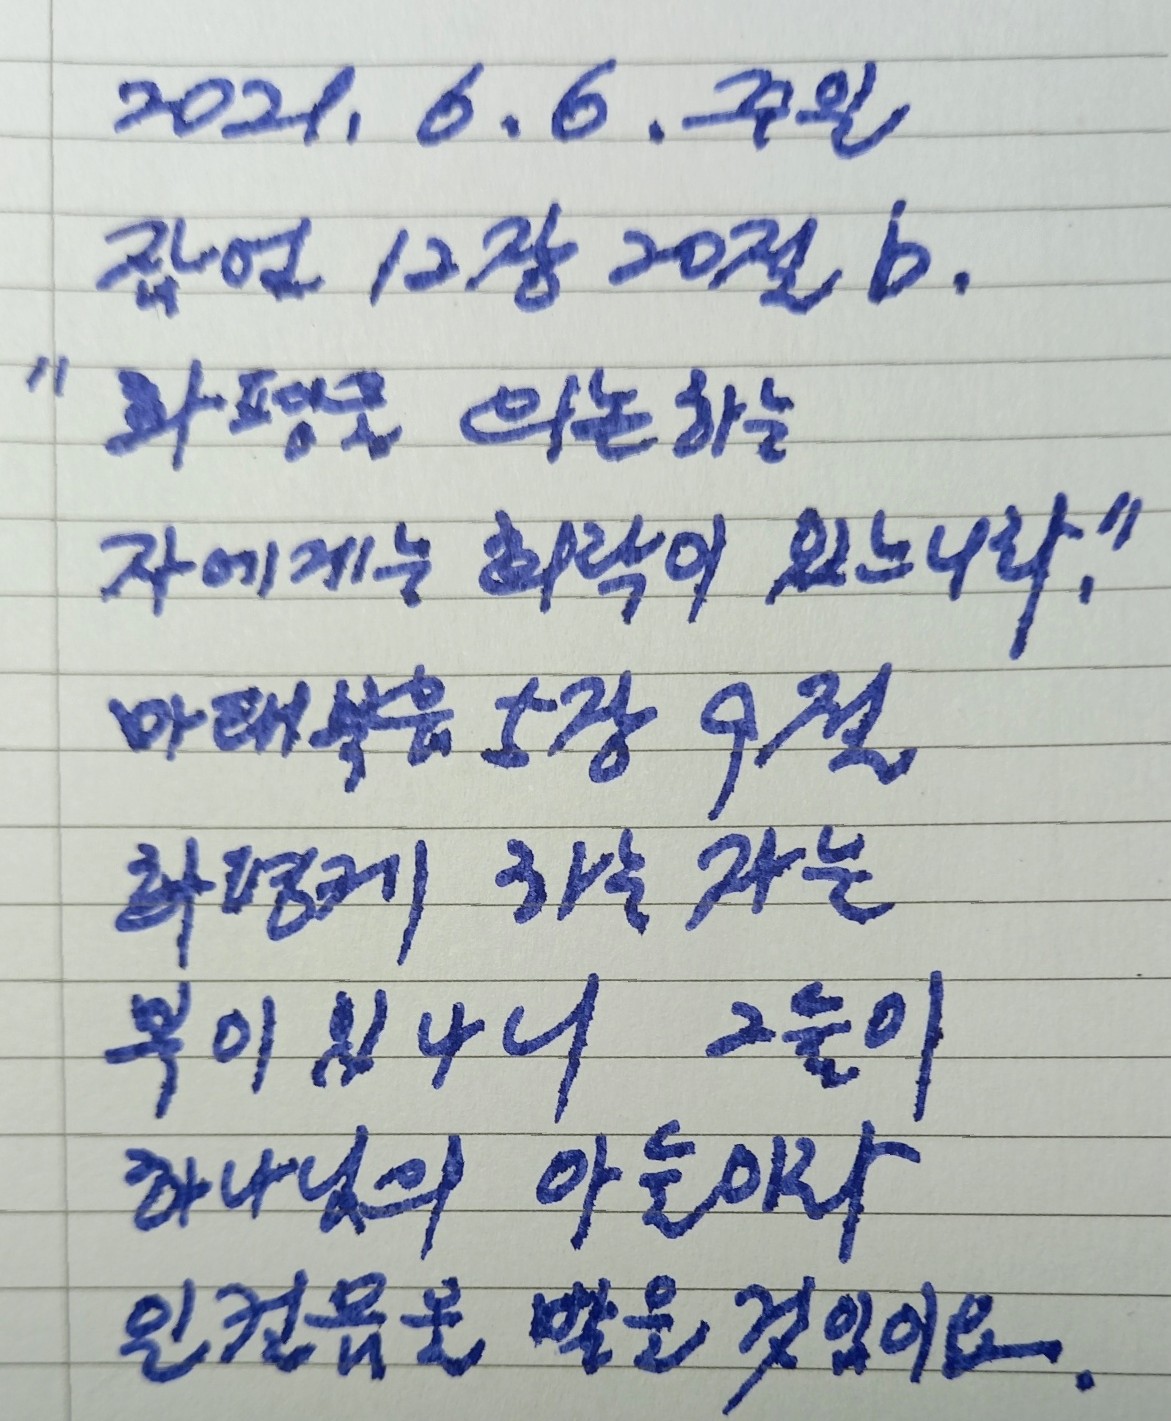 2021. 6. 6. 주일
잠언 12장 20절 b.
"화평을 의논하는
자에게는 희락이 있느니라."
마태복음 5장 9절
화평케 하는 자는
복이 있나니 그들이
하나님의 아들이라
일컬음을 받을 것임이요.